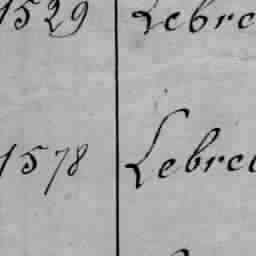 1529 Lebre
1578 Lebre